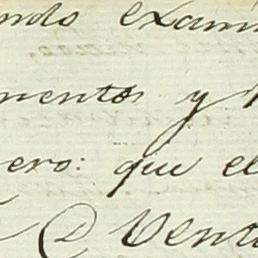 ndo exam
mentos y
ero: que el
D Vent